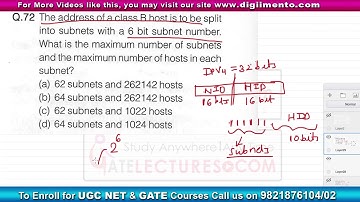 For More Videos like this, you may visit our site www.digiimento.com
Q.72 The address of a class B host is to be split
into subnets with a 6 bit subnet number.
What is the maximum number of subnets
and the maximum number of hosts in each
subnet?
(a) 62 subnets and 262142 hosts
(b) 64 subnets and 262142 hosts
(c) 62 subnets and 1022 hosts
(d) 64 subnets and 1024 hosts
IPV4 = 32 bits
NID HID
16 bits 16 bit
HID
10 bits
Subnets
2^6
Study Anywhere
GATELECTURES.COM
To Enroll for UGC NET & GATE Courses Call us on 9821876104/02